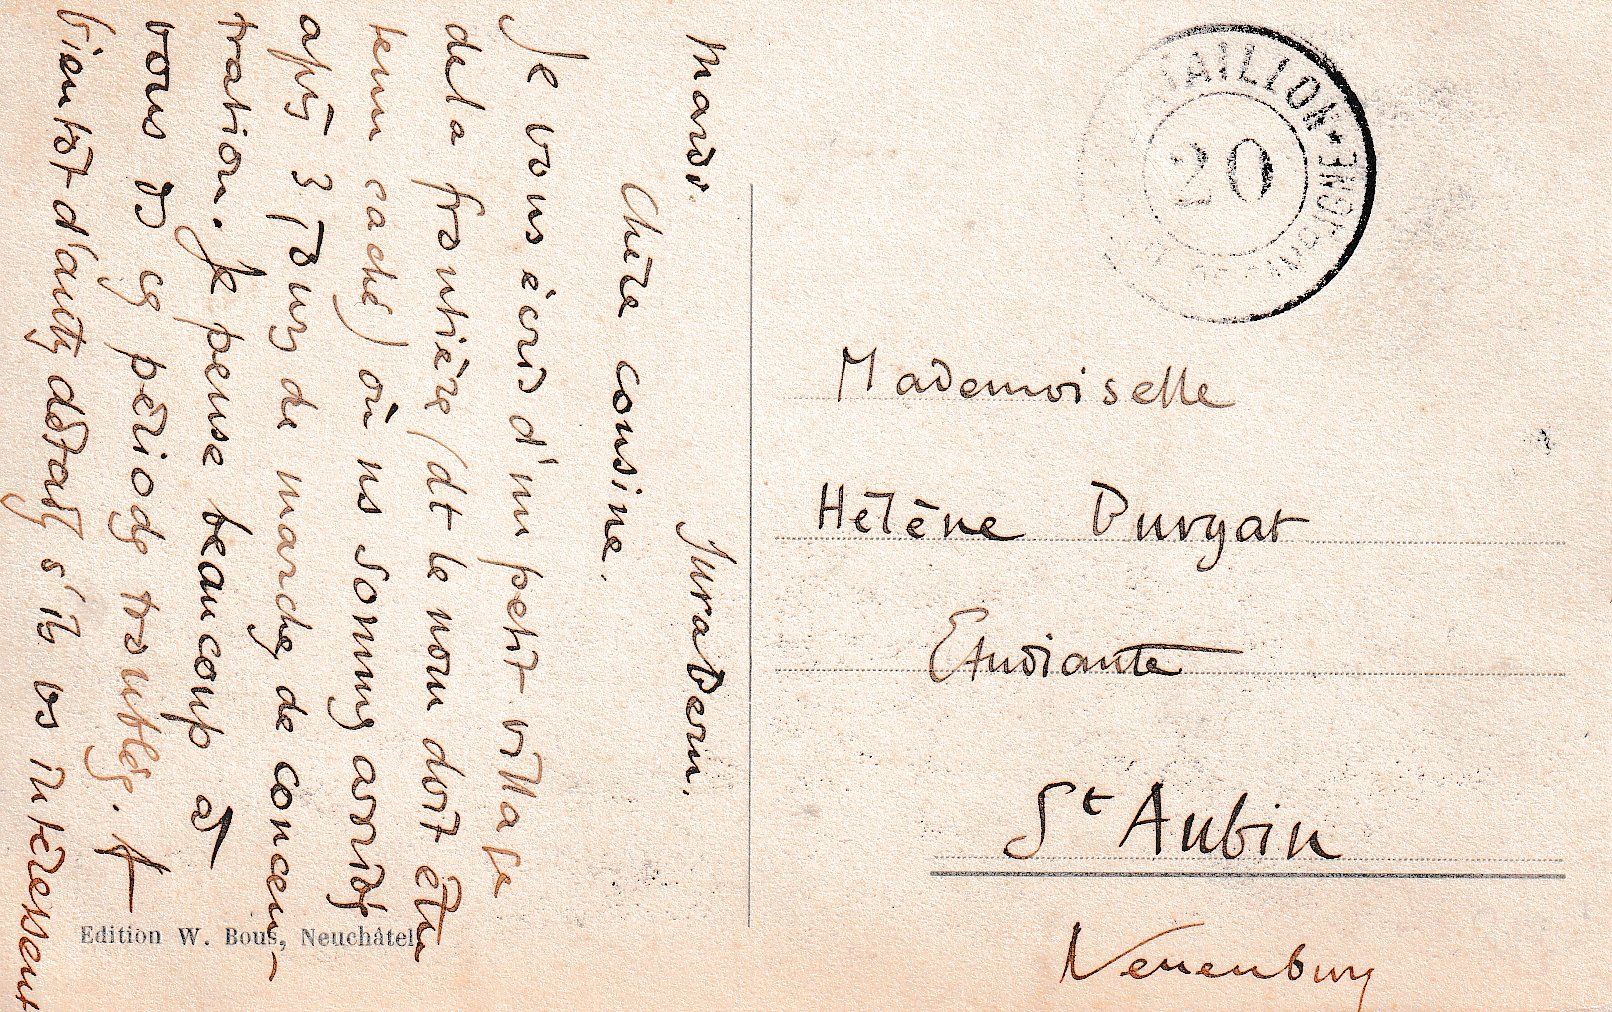 Mardi. Jura Bern.
Chère cousine.
Je vous écris d'un petit village
de la frontière (dt le nom doit être
tenu caché) où ns sommes arrivés
après 3 jours de marche de concen-
tration. Je pense beaucoup à
vous ds ces périodes troublées. A
bientôt d'autres détails s'ils vs intéressent
Edition W. Bous, Neuchâtel.
BATAILLON * 
20
POSTE DE CAMPAGNE
Mademoiselle
Hélène Purgat
Etudiante
St Aubin
Neuenburg